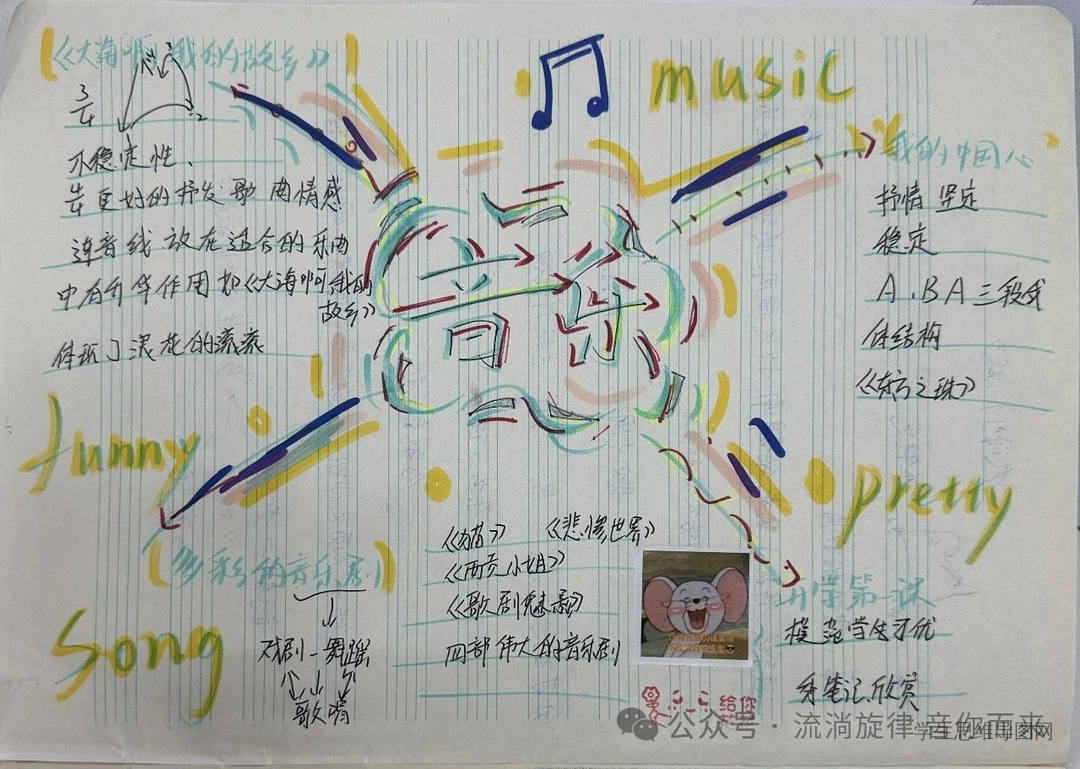 《大海啊，我的故乡》
3
4
2
不稳定性、
能更好的抒发歌曲情感
连音线放在适合的乐曲
中有升华作用如《大海啊我的
故乡》
体现了浪花的
music
我的中国心
抒情 坚定
稳定
A、B A 三段式
体结构
《东方之珠》
音乐
funny
pretty
(多彩的音乐剧)
戏剧-舞蹈
歌唱
song
《猫》 《悲惨世界》
《西贡小姐》
《歌剧魅影》
四部伟大的音乐剧
开学第一课
学生才优
秀笔记欣赏
给你
公众号·流淌旋律 音你而来
学生思维导图网